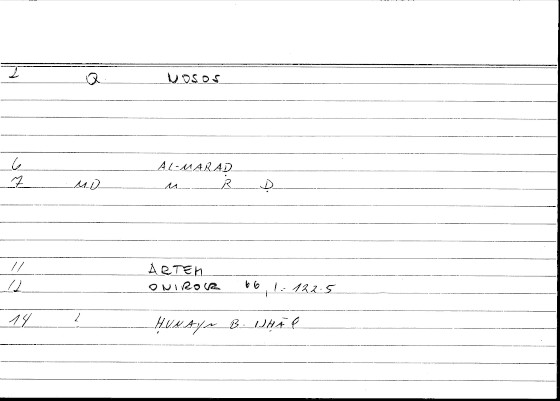 2 Q NOSOS
6 AL-MARAḌ
7 MD M R Ḍ
11 ARTEM
12 ONIROCR 66, 1: 122.5
14 1 ḤUNAYN B. ISḤĀQ